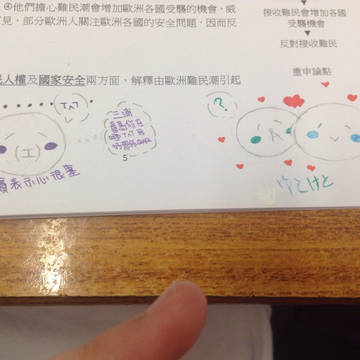 ④他們擔心難民潮會增加歐洲各國受襲的機會,威
見,部分歐洲人關注歐洲各國的安全問題,因而反
接收難民會增加各國
受襲機會
反對接收難民
重申論點
民人權及國家安全兩方面,解釋由歐洲難民潮引起
TAT
?
(工)
三浦
5
表示心很塞
ゆとけと